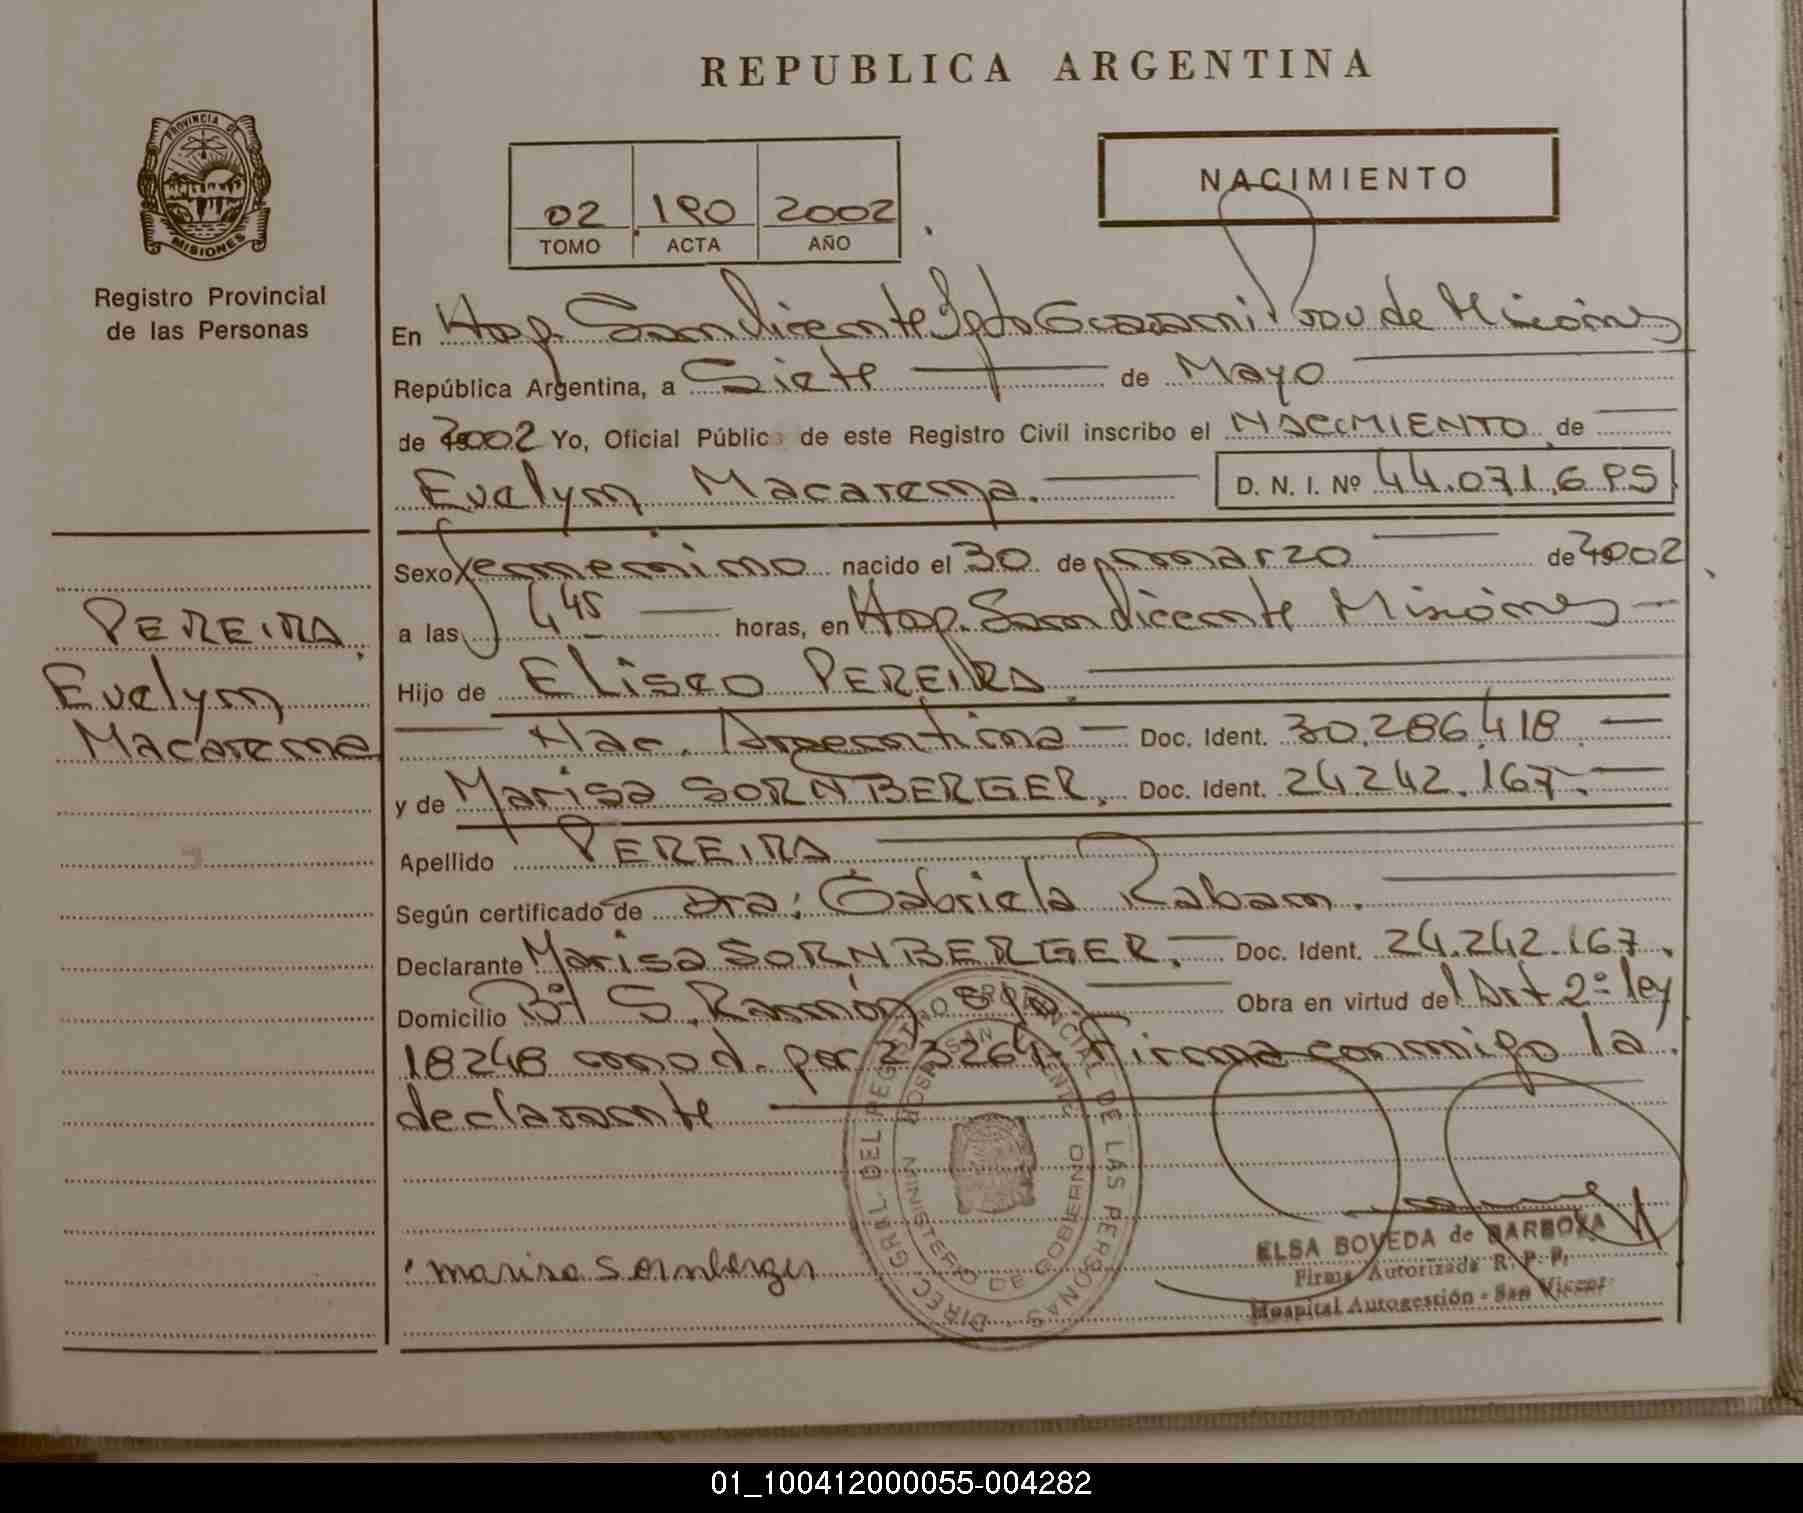 REPUBLICA ARGENTINA
PROVINCIA DE
MISIONES
Registro Provincial
de las Personas
02 190 2002
TOMO ACTA AÑO
NACIMIENTO
En Hosp. San Vicente Dpto Guarani Prov de Misiones
República Argentina, a Siete de Mayo
de 2002 Yo, Oficial Público de este Registro Civil inscribo el NACIMIENTO de
Evelyn Macarena. D. N. I. Nº 44.071.695
Sexo femenino nacido el 30 de marzo de 2002
a las 4 45 horas, en Hosp. San Vicente Misiones
Hijo de Eliseo PEREIRA
Nac. Argentina Doc. Ident. 30.286.418
y de Marisa SORNBERGER. Doc. Ident. 24.242.167.
Apellido PEREIRA
Según certificado de Dra: Gabriela Raban.
Declarante Marisa SORNBERGER. Doc. Ident. 24.242.167.
Domicilio Bº S. Ramón Obra en virtud del Art 2º ley
18248 mod. por 23264. Firma conmigo la
declarante
PEREIRA
Evelyn
Macarena
marisa Sornberger
DIREC. GRAL. DEL REGISTRO PROVINCIAL DE LAS PERSONAS
MINISTERIO DE GOBIERNO
ELSA BOVEDA de BARBOZA
Firma Autorizada R. P. P.
Hospital Autogestión - San Vicente
01_100412000055-004282